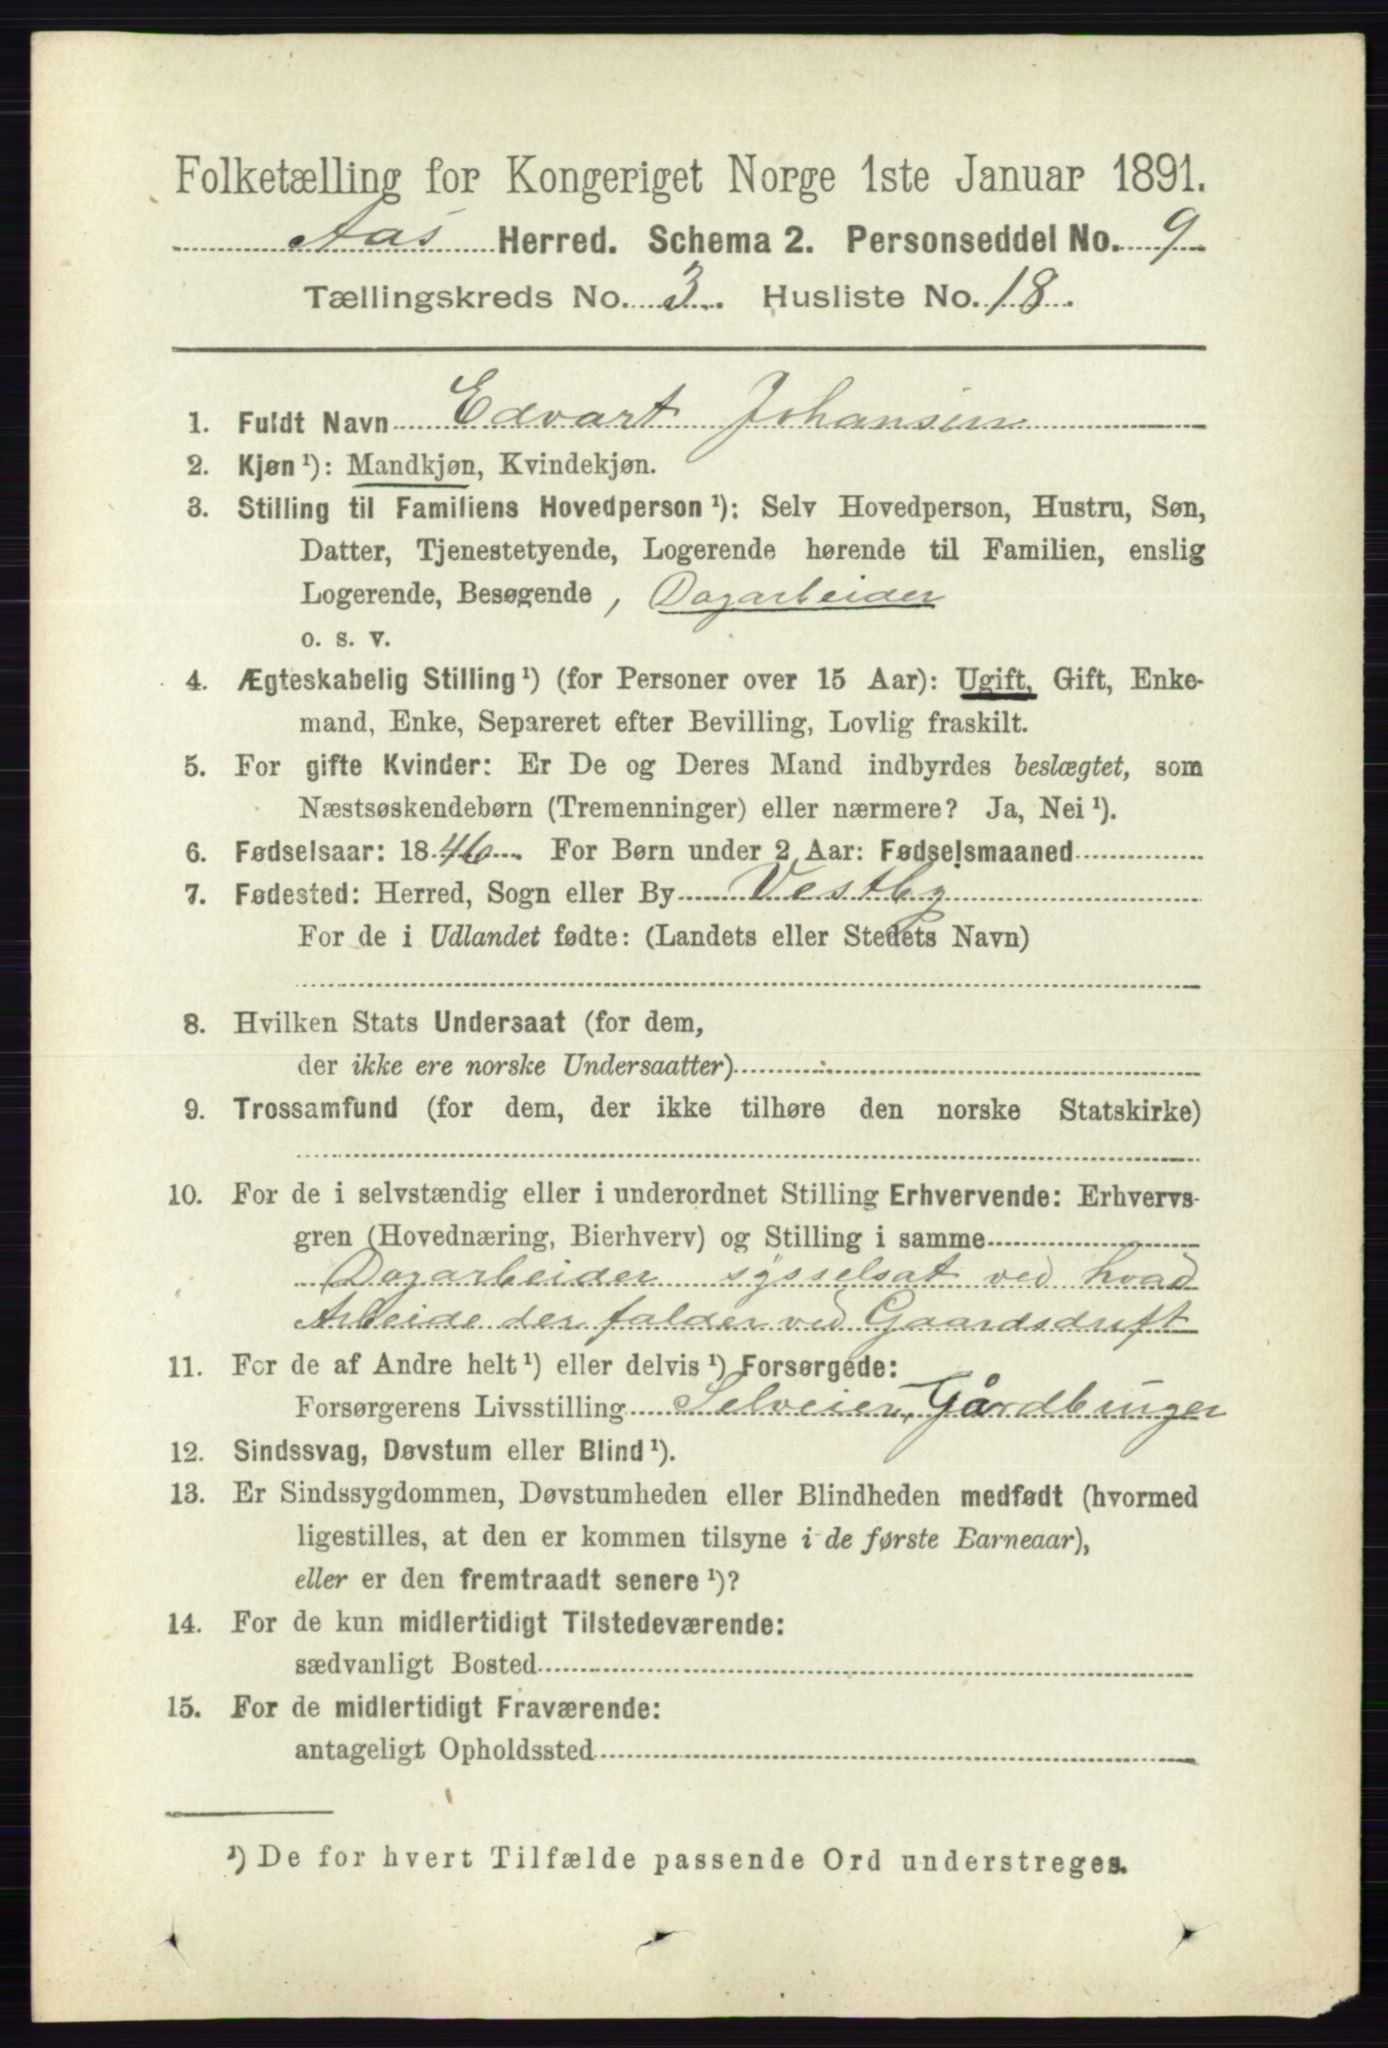 Folketælling for Kongeriget Norge 1ste Januar 1891.
Aas Herred. Schema 2. Personseddel No. 9
Tællingskreds No. 3. Husliste No. 18.
1. Fuldt Navn Edvart Johansen
2. Kjøn ¹): Mandkjøn, Kvindekjøn.
3. Stilling til Familiens Hovedperson ¹): Selv Hovedperson, Hustru, Søn,
Datter, Tjenestetyende, Logerende hørende til Familien, enslig
Logerende, Besøgende, Dagarbeider
o. s. v.
4. Ægteskabelig Stilling ¹) (for Personer over 15 Aar): Ugift, Gift, Enke-
mand, Enke, Separeret efter Bevilling, Lovlig fraskilt.
5. For gifte Kvinder: Er De og Deres Mand indbyrdes beslægtet, som
Næstsøskendebørn (Tremenninger) eller nærmere? Ja, Nei ¹).
6. Fødselsaar: 1846. For Børn under 2 Aar: Fødselsmaaned
7. Fødested: Herred, Sogn eller By Vestby
For de i Udlandet fødte: (Landets eller Stedets Navn)
8. Hvilken Stats Undersaat (for dem,
der ikke ere norske Undersaatter)
9. Trossamfund (for dem, der ikke tilhøre den norske Statskirke)
10. For de i selvstændig eller i underordnet Stilling Erhvervende: Erhvervs-
gren (Hovednæring, Bierhverv) og Stilling i samme
Dagarbeider sysselsat ved hvad
Arbeide der falder ved Gaardsdrift
11. For de af Andre helt ¹) eller delvis ¹) Forsørgede:
Forsørgerens Livsstilling Selveier, Gårdbruger
12. Sindssvag, Døvstum eller Blind ¹).
13. Er Sindssygdommen, Døvstumheden eller Blindheden medfødt (hvormed
ligestilles, at den er kommen tilsyne i de første Barneaar),
eller er den fremtraadt senere ¹)?
14. For de kun midlertidigt Tilstedeværende:
sædvanligt Bosted
15. For de midlertidigt Fraværende:
antageligt Opholdssted
¹) De for hvert Tilfælde passende Ord understreges.